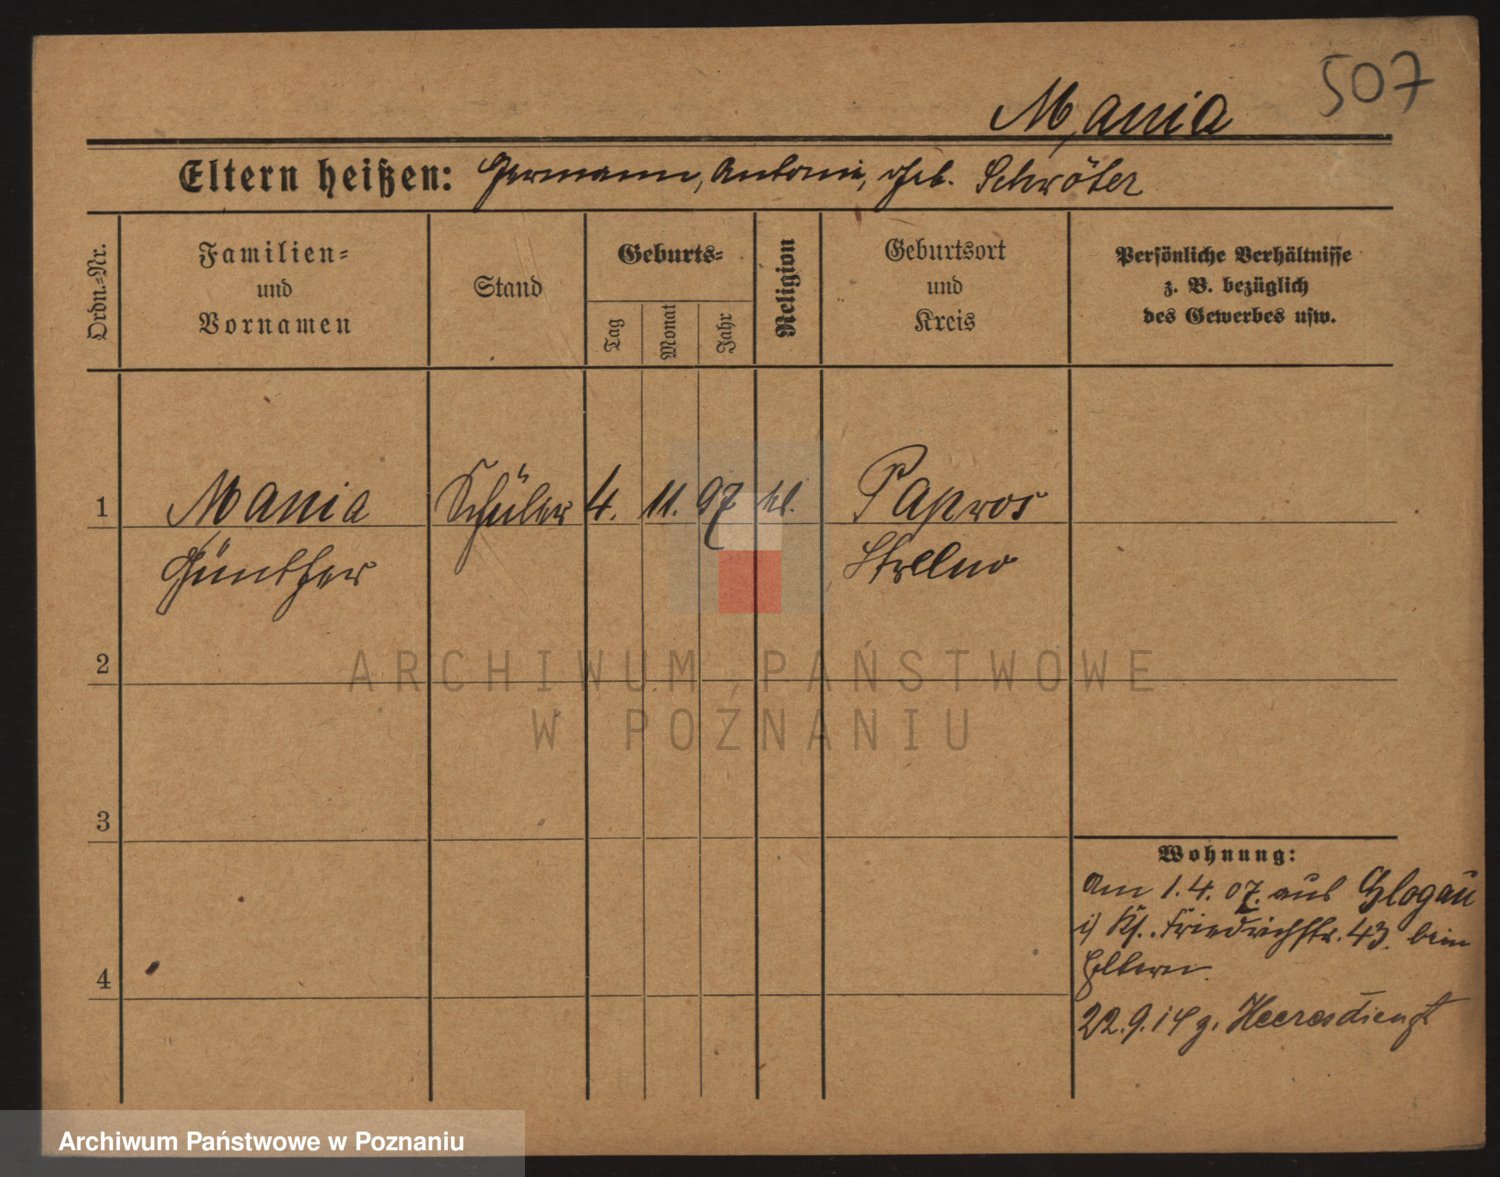 507
Mania
Eltern heißen: Hermann, Antonie, geb. Schröter
Ordn.-Nr.
Familien-
und
Vornamen
Stand
Geburts-
Tag
Monat
Jahr
Religion
Geburtsort
und
Kreis
Persönliche Verhältnisse
z. B. bezüglich
des Gewerbes usw.
1
Mania
Schüler
4.
11.
97
Papros
Günther
Strelno
2
3
4
Wohnung:
Am 1.4.07. aus Glogau
Friedrichstr. 43. beim
Eltern.
22.9.14 z. Heeresdienst
ARCHIWUM PAŃSTWOWE
W POZNANIU
Archiwum Państwowe w Poznaniu